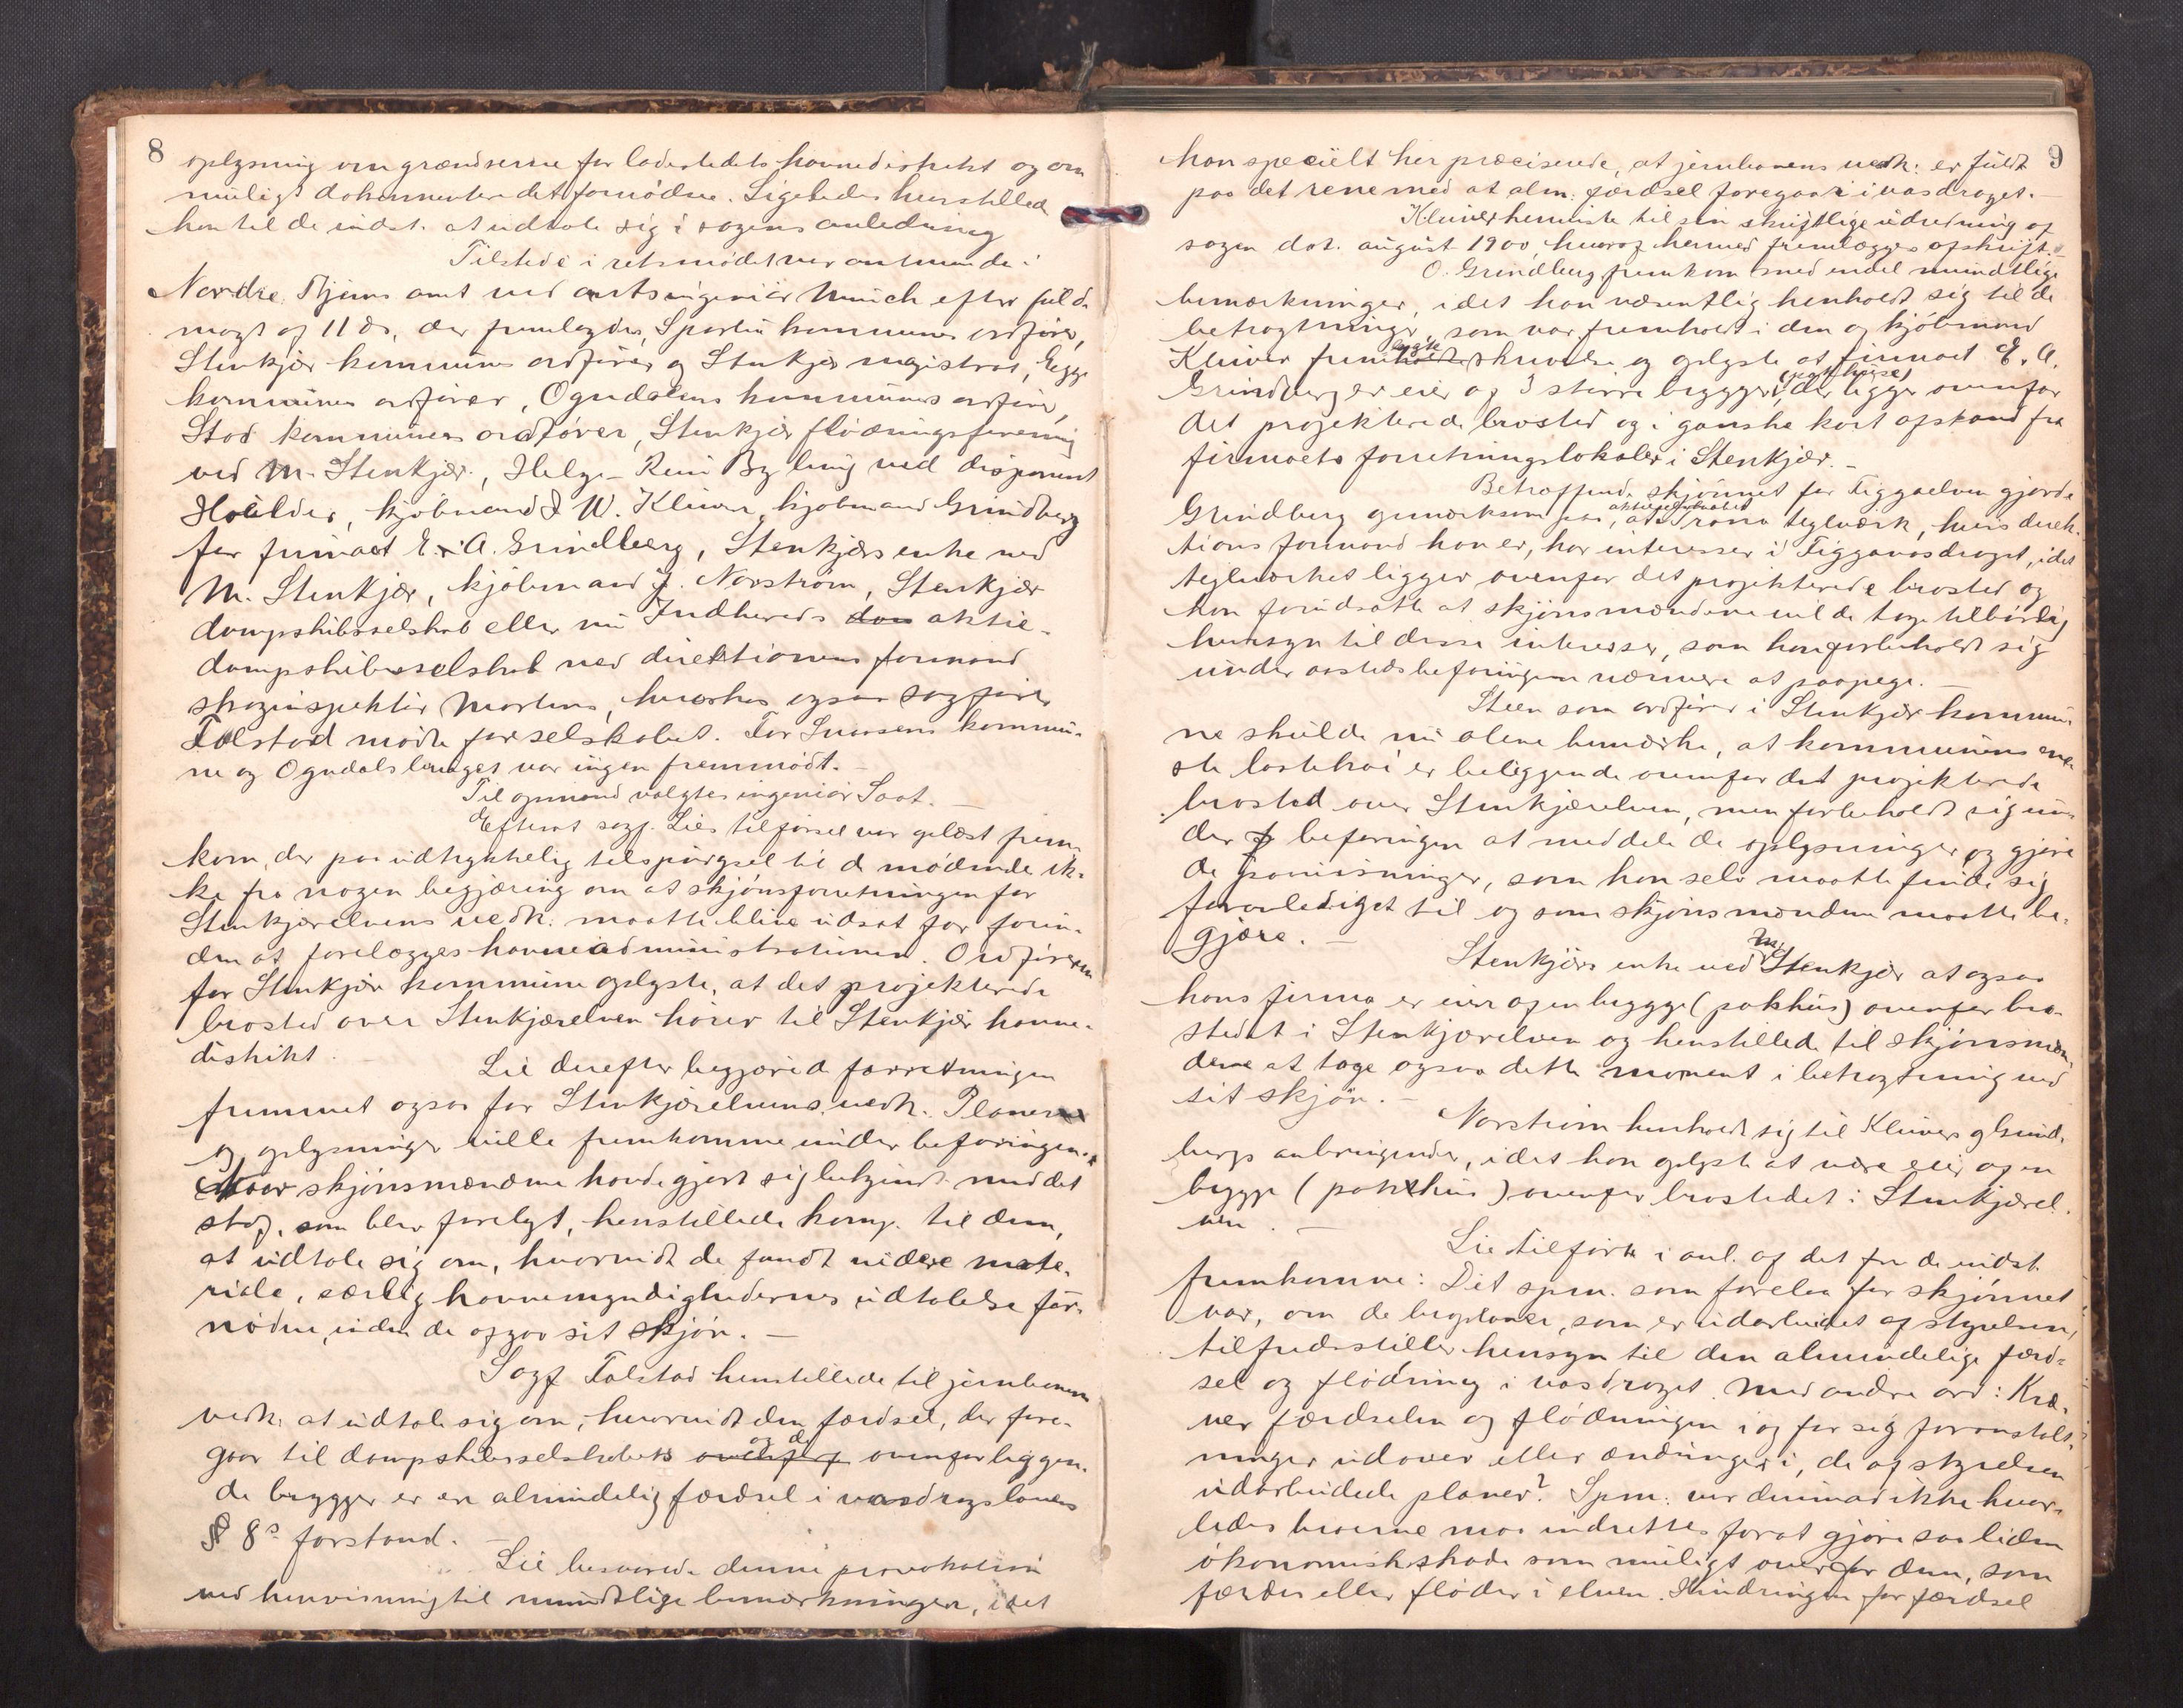 8
oplysning om grændserne for ladestedets havnedistrikt og om
muligt dokumenter det fornødne. Ligeledes henstillede
han til de indst. at udtale sig i sagens anledning
Tilstede i retsmødet var anmeldte:
Nordre Thjems amt ved amtsingeniør Munch efter fuld-
magt af 11 ds., der fremlagdes, Sparbu kommunes ordfører,
Stenkjær kommunes ordfører og Stenkjær magistrat, Egge
kommunes ordfører, Ogndalens kommunes ordfører,
Stod kommunes ordfører, Stenkjær flødningsforening
ved M. Stenkjær, Helge-Rein By brug ved disponent
Houlder, kjøbmand I W. Klüver, kjøbmand Grindberg
for firmaet E. A. Grindberg, Stenkjærs enke ved
M. Stenkjær, kjøbmand J. Norstrøm, Stenkjær
dampskibsselskab eller nu Indhereds dam aktie-
dampskibsselskab ved direktionens formand
skoginspektør Martens, hvorhos ogsaa sagfører
Tolstad mødte for selskabet. For Snaasens kommu-
ne og Ogndalsbruget var ingen fremmødt. –
Til opmand valgtes ingeniør Saat. –
Efterat sagf. Lies tilførsel var oplæst frem-
kom der paa udtrykkelig tilspørgsel til de mødende ik-
ke fra nogen begjæring om at skjønsforretningen for
Stenkjærelvens vedk. maatte blive udsat for forin-
den at forelægges havneadministrationen. Ordføreren
for Stenkjær kommune oplyste, at det projekterede
brosted over Stenkjærelven hører til Stenkjær havne-
distrikt. –
Lie derefter begjærede forretningen
fremmet ogsaa for Stenkjærelvens vedk. Planerne
og oplysninger ville fremkomme under befaringen.
Naar skjønsmændene havde gjort sig bekjendt med det
stof, som blev forelagt, henstillede komp. til dem,
at udtale sig om, hvorvidt de fandt videre mate-
riale, særlig havnemyndighedernes udtalelse for-
nøden, inden de afgav sit skjøn. –
Sagf. Tolstad henstillede til jernbanens
vedk. at udtale sig om, hvorvidt den færdsel, der fore-
gaar til dampskibsselskabets ovenfor og de ovenfor liggen-
de brygger er en almindelig færdsel i vasdragslovens
§ 8s forstand. –
Lie besvarede denne provokation
ved henvisning til mundtlige bemærkninger, idet
9
han specielt her præciserede, at jernbanens vedk. er fuldt
paa det rene med at alm. færdsel foregaar i vasdraget. –
Klüver henviste til sin skriftlige udredning af
sagen dat. august 1900, hvoraf hermed fremlægges afskrift. –
O. Grindberg fremkom med endel mundtlige
bemærkninger, idet han væsentlig henholdt sig til de
betragtninger, som var fremholdt i den af kjøbmand
Klüver fremholdte lagte skrivelse og oplyste at firmaet E. A.
Grindberg er eier af 3 større brygger (pakhuse), der ligger ovenfor
det projekterede brosted og i ganske kort afstand fra
firmaets forretningslokaler i Stenkjær. –
Betræffende skjønnet for Figgaelven gjorde
Grindberg opmærksom paa, at aktieselskabet rana teglværk, hvis direk-
tions formand han er, har interesser i Figgavasdraget, idet
teglværket ligger ovenfor det projekterede brosted og
han forudsatte at skjønsmændene vilde tage tilbørlig
hensyn til disse interesser, som han forbeholdt sig
under aastedsbefaringen nærmere at paapege. –
Steen som ordfører i Stenkjær kommu-
ne skulde nu alene bemærke, at kommunens ene-
ste lastekai er beliggende ovenfor det projekterede
brosted over Stenkjærelven, men forbeholdt sig un-
der befaringen at meddele de oplysninger og gjøre
de paavisninger, som han selv maatte finde sig
foranlediget til og som skjønsmændene maatte be-
gjære. –
Stenkjærs enke ved M. Stenkjær at ogsaa
hans firma er eier af en brygge (pakhus) ovenfor bro-
stedet i Stenkjærelven og henstillede til skjønsmæn-
dene at tage ogsaa dette moment i betragtning ved
sit skjøn. –
Norstrøm henholdt sig til Klüvers og Grind-
bergs anbringender, idet han oplyste at være eier af en
brygge (pakhus) ovenfor brostedet i Stenkjærel-
ven. –
Lie tilførte i anl. af det fra de indst.
fremkomne: Det spm. som forelaa for skjønnet
var, om de broplaner, som er udarbeidet af styrelsen,
tilfredsstiller hensyn til den almindelige færd-
sel og flødning i vasdraget. Med andre ord: Kræ-
ver færdselen og flødningen i og for sig foranstalt-
ninger udover eller ændringer i, de af styrelsen
udarbeidede planer? Spm. var derimod ikke hvor-
ledes broerne maa indrettes for at gjøre saa liden
økonomisk skade som muligt overfor dem, som
færdes eller fløder i elven. Hindringen for færdsel